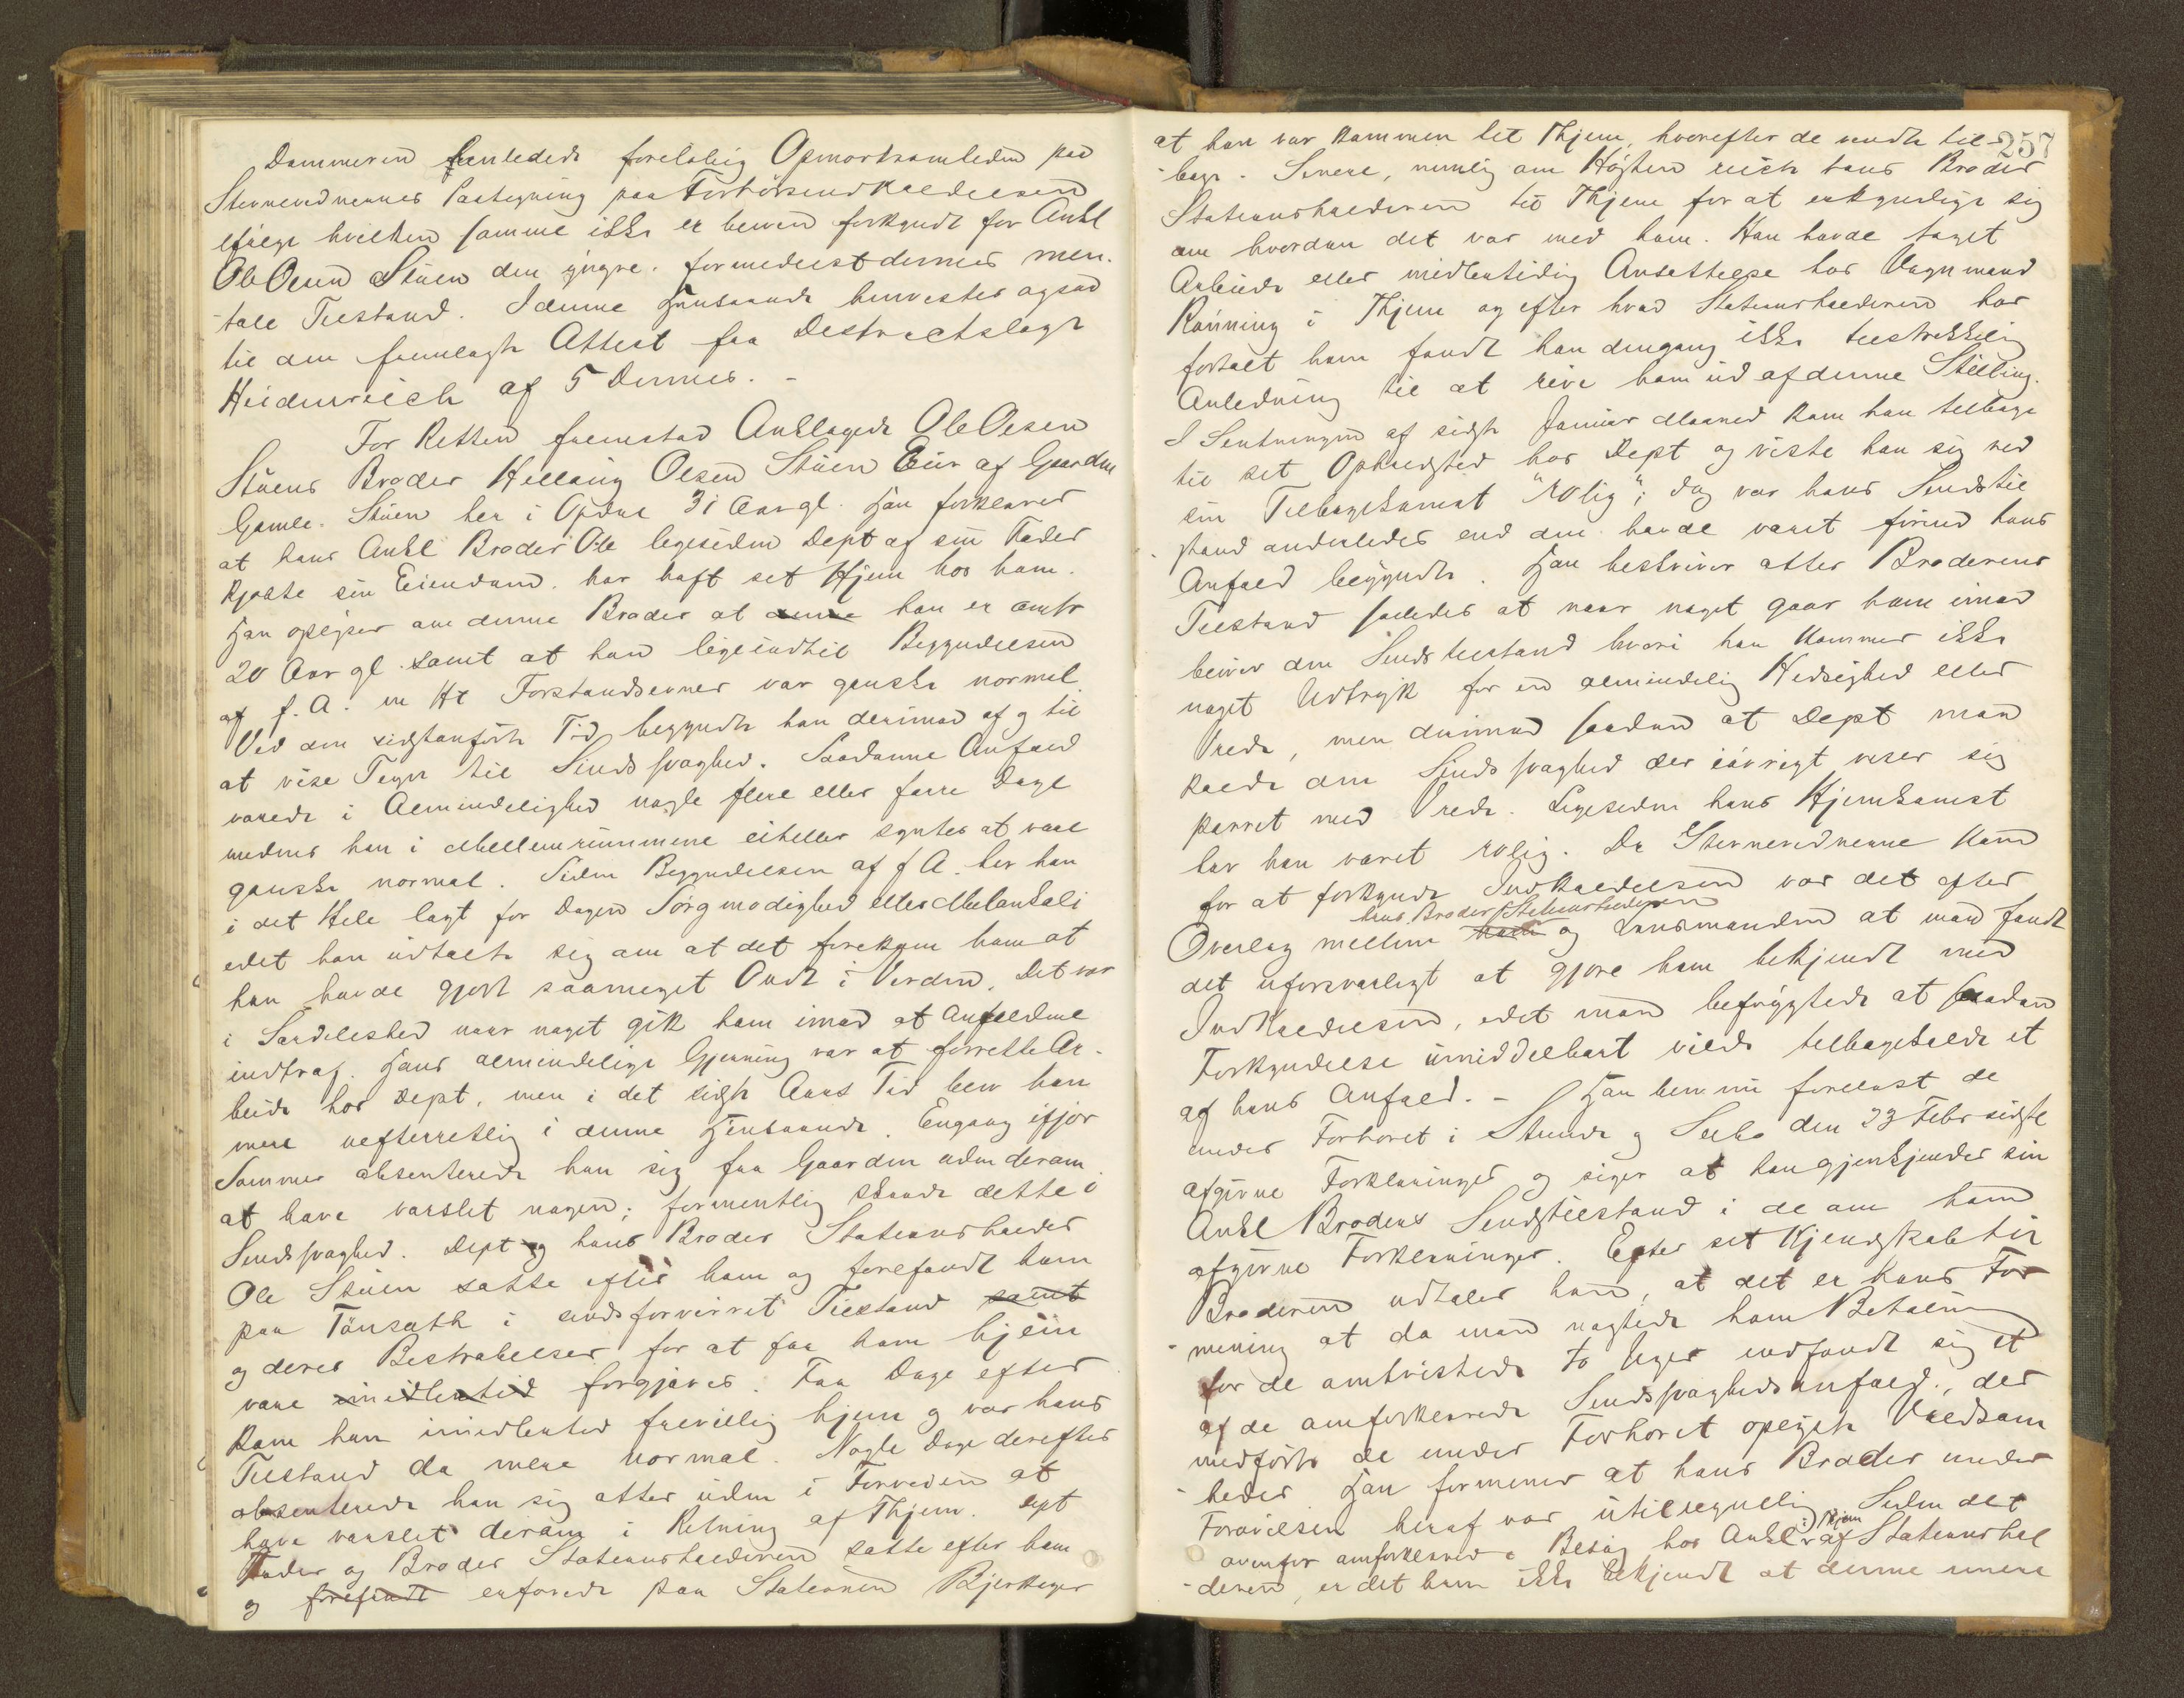 Dommeren henledede foreløbig Opmærksomheden paa
Stevnevidnernes Paategning paa Forhørsindkaldelsen
ifølge hvilken samme ikke er bleven forkyndt for Ankl
Ole Olsen Stuen den yngre formedelst dennes men-
tale Tilstand. I denne Henseende henvistes ogsaa
til den fremlagte Attest fra Destrictslæge
Heidenreich af 5 Dennes. -
For Retten fremstod Anklagede Ole Olsen
Stuens Broder Helling Olsen Stuen Eier af Gaarden
Gamle-Stuen her i Opdal 31 Aar gl. Han forklarer
at hans Ankl Broder Ole ligesiden Dept af sin Fader
kjøbte sin Eiendom. har haft sit Hjem hos ham.
Han oplyser om denne Broder at denne han er omtr
20 Aar gl. samt at han ligeindtil Begyndelsen
af f. A. m Ht Forstandsevner var ganske normal
Ved den sidstanførte Tid begyndte han derimod af og til
at vise Tegn til Sindssvaghed. Saadanne Anfald
varede i Almindelighed nogle flere eller færre Dage
medens han i Mellemrummene eiheller syntes at være
ganske normal. Siden Begyndelsen af f A. har han
i det Hele lagt for Dagen Sørgmodighed eller Melankoli
idet han udtalte sig om at det forekom ham at
han havde gjort saameget Ondt i Verden. Det var
i Særdeleshed naar noget gik ham imod at Anfaldene
indtraf. Hans almindelige Gjerning var at forrette Ar-
beide hos Dept, men i det sidste Aars Tid blev han
mere uefterretlig i denne Henseende. Engang ifjor
Sommer absenterede han sig fra Gaarden uden derom
at have varslet nogen; formentlig skeede dette i
Sindssvaghed. Dept og hans Broder Stationsholder
Ole Stuen satte efter ham og forefandt ham
paa Tønsæth i sindsforvirret Tilstand samt
og deres Bestræbelser for at faa ham hjem
vare imidlertid forgjæves. Faa Dage efter
kom han imidlertid frivillig hjem og var hans
Tilstand da mere normal. Nogle Dage derefter
absenterede han sig atter uden i Forveien at
have varslet derom i Retning af Thjem. Dept
Fader og Broder Stationsholderen satte efter ham
og forefandt erfarede paa Stationen Bjerkager
257
at han var kommen til Thjem, hvorefter de vendte til-
bage. Senere, nemlig om Høsten reiste hans Broder
Stationsholderen til Thjem for at erkyndige sig
om hvordan det var med ham. Han havde taget
Arbeide eller midlertidig Ansættelse hos Vognmand
Rønning i Thjem og efter hvad Stationsholderen har
fortalt ham fandt han dengang ikke tilstrækkelig
Anledning til at rive ham ud af denne Stilling.
I Slutningen af sidste Januar Maaned kom han tilbage
til sit Opholdsted hos Dept og viste han sig ved
sin Tilbagekomst "rolig"; dog var hans Sindstil
stand anderledes end den havde været førend hans
Anfald begyndte. Han beskriver atter Broderens
Tilstand saaledes at naar noget gaar ham imod
bliver den Sindstilstand hvori han kommer ikke
noget Udtryk for en almindelig Hidsighed eller
Vrede, men derimod saadan at Dept maa
kalde den Sindssvaghed der iøvrigt viser sig
parret med Vrede. Ligesiden hans Hjemkomst
har han været rolig. Da Stevnevidnerne kom
for at forkynde Indkaldelsen var det efter
hans Broder Stationsholderen
Overlæg mellem ham og Lensmanden at man fandt
det uforsvarligt at gjøre ham bekjendt med
Indkaldelsen, idet man befrygtede at saadan
Forkyndelse umiddelbart vilde tilbagekalde et
af hans Anfald. - Han blev nu forelæst de
under Forhøret i Stueren og Selbo den 23 Febr sidstl
afgivne Forklaringer og siger at han gjenkjender sin
Ankl Broders Sindstilstand i de om ham
afgivne Forklaringer. Efter sit Kjendskab til
Broderen udtaler han, at det er hans For
mening at da man nægtede ham Betaling
for de omtvistede to Uger indfandt sig et
af de omforklarede Sindssvaghedsanfald, der
medførte de under Forhøret oplyste Voldsom
heder. Han formener at hans Broder under
Forøvelsen heraf var utilregnelig. Siden det
i Thjem
ovenfor omforklarede Besøg hos Ankl af Stationshol
deren, er det ham ikke bekjendt at denne senere